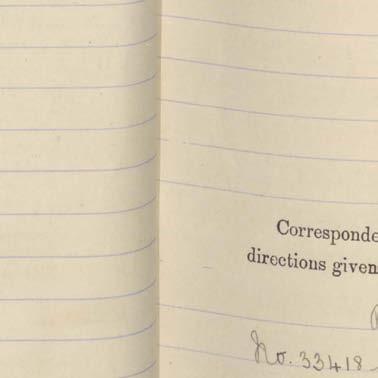 Corresponde
directions given
No. 33418